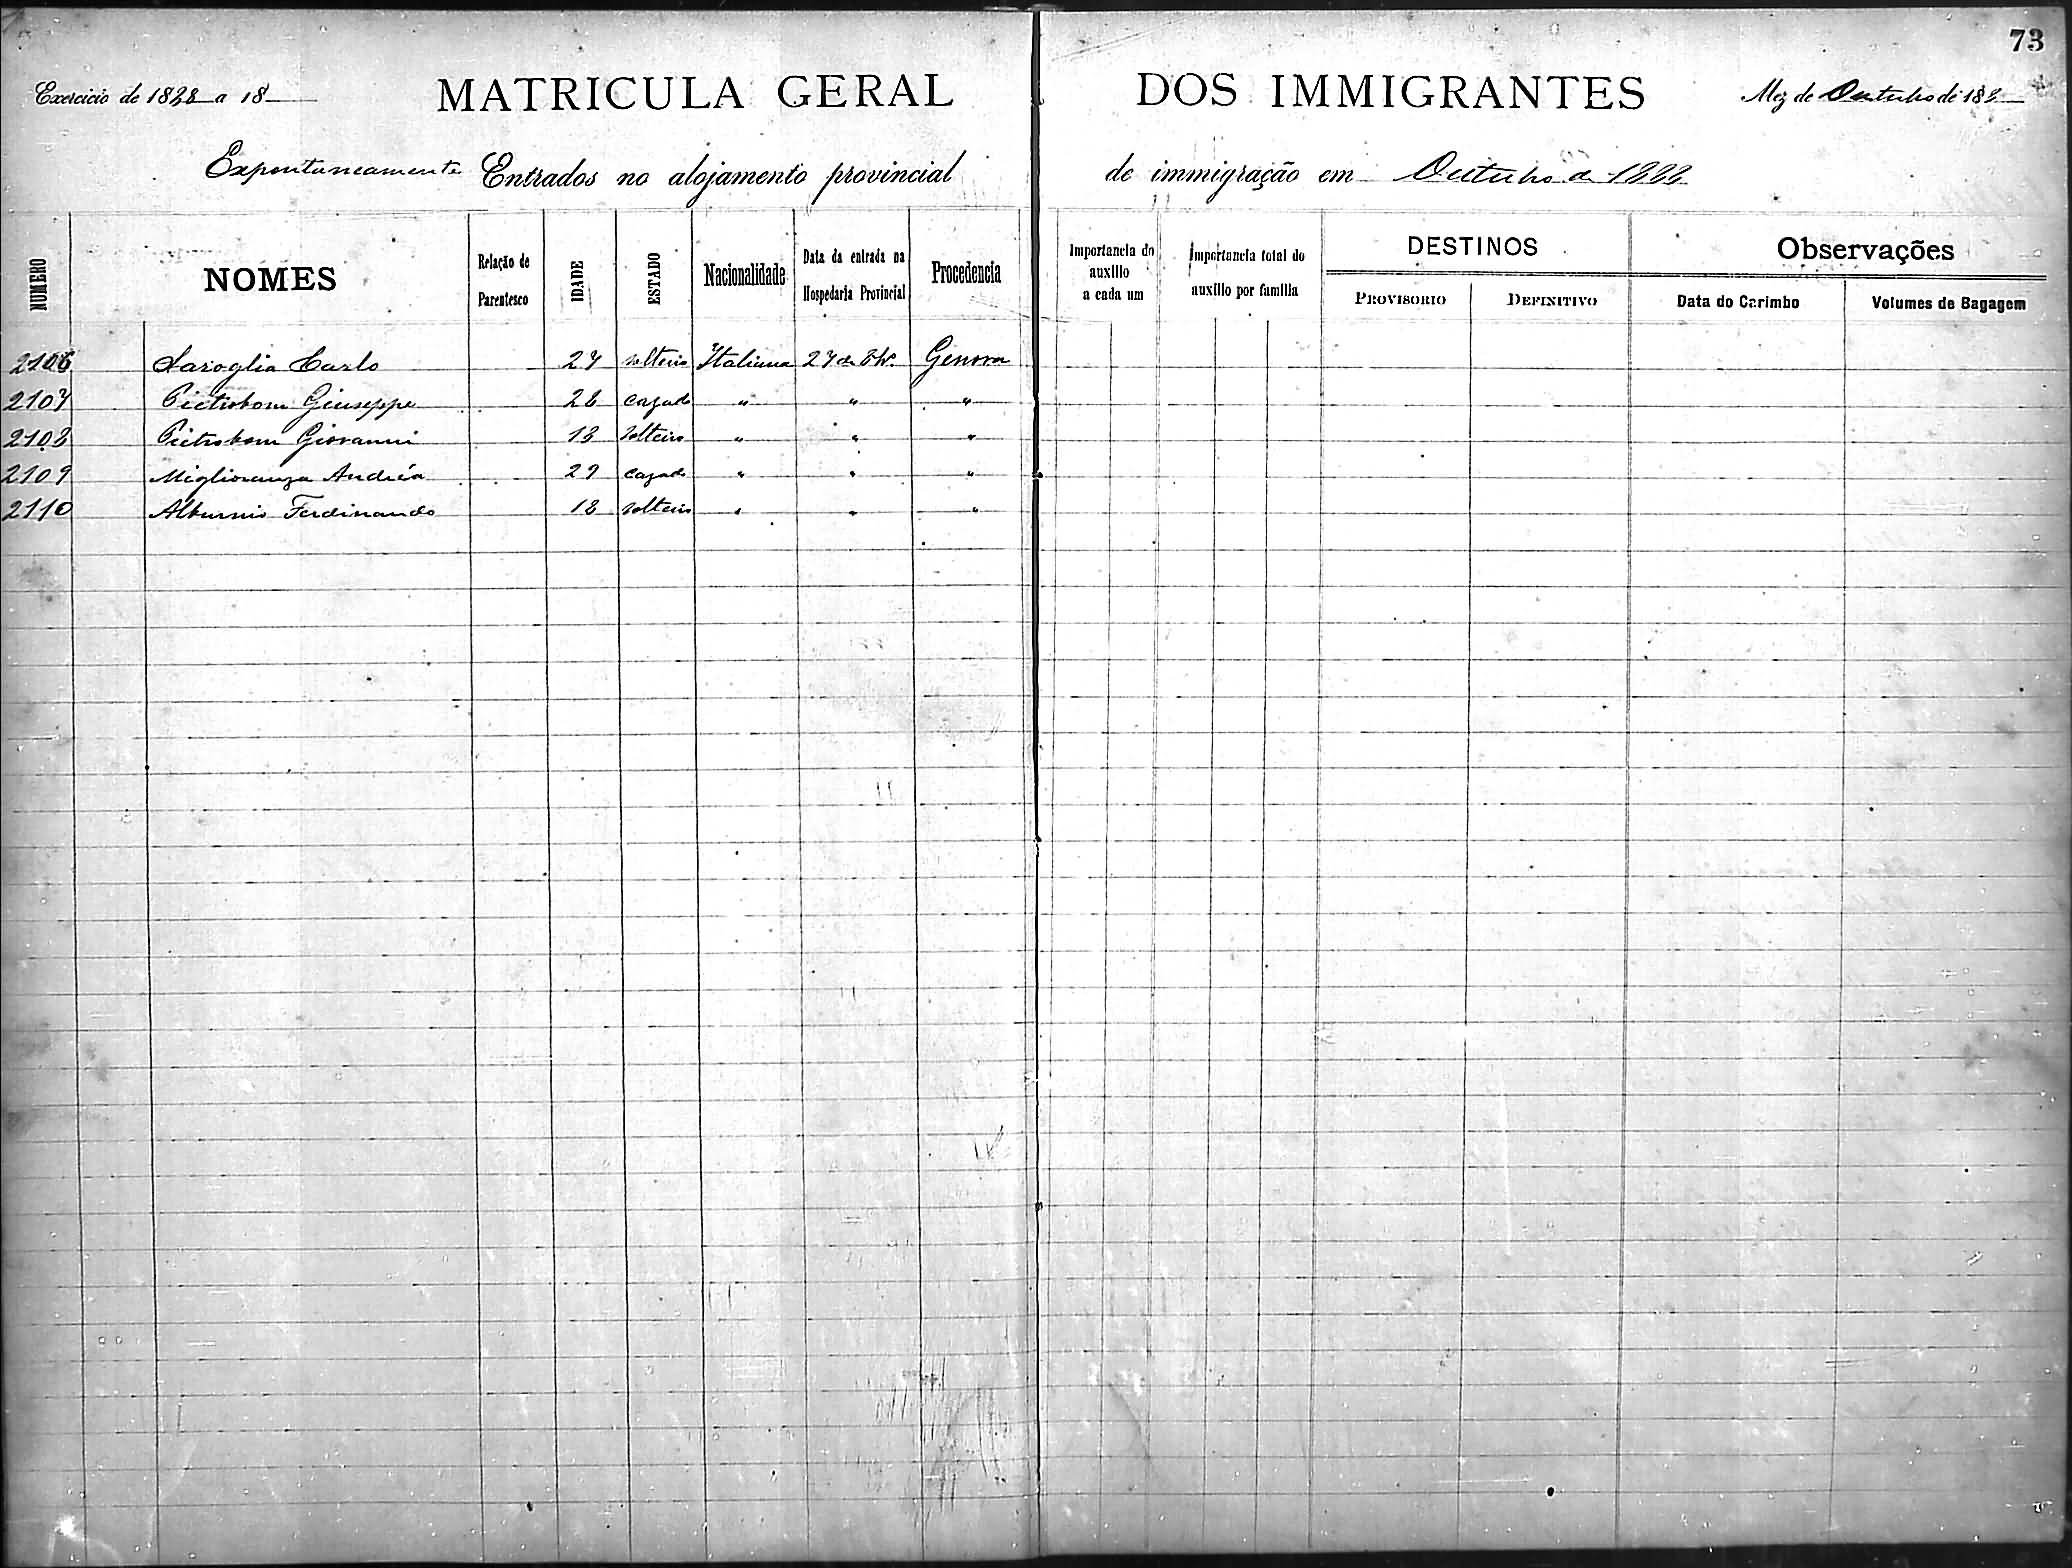 73
Exercicio de 1888 a 18
MATRICULA GERAL DOS IMMIGRANTES
Mez de Outubro de 188
Expontaneamente Entrados no alojamento provincial de immigração em Outubro de 1888
NUMERO
NOMES
Relação de Parentesco
IDADE
ESTADO
Nacionalidade
Data da entrada na Hospedaria Provincial
Procedencia
Importancia do auxilio a cada um
Importancia total do auxilio por familia
DESTINOS
PROVISORIO
DEFINITIVO
Observações
Data do Carimbo
Volumes de Bagagem
2106 Saroglia Carlo 27 solteiro Italiana 27 de Genova
2107 Pietrobom Giuseppe 28 cazado " " "
2108 Pietrobom Giovanni 18 solteiro " " "
2109 Miglioranza Andréa 29 cazado " " "
2110 Ferdinando 18 solteiro " " "